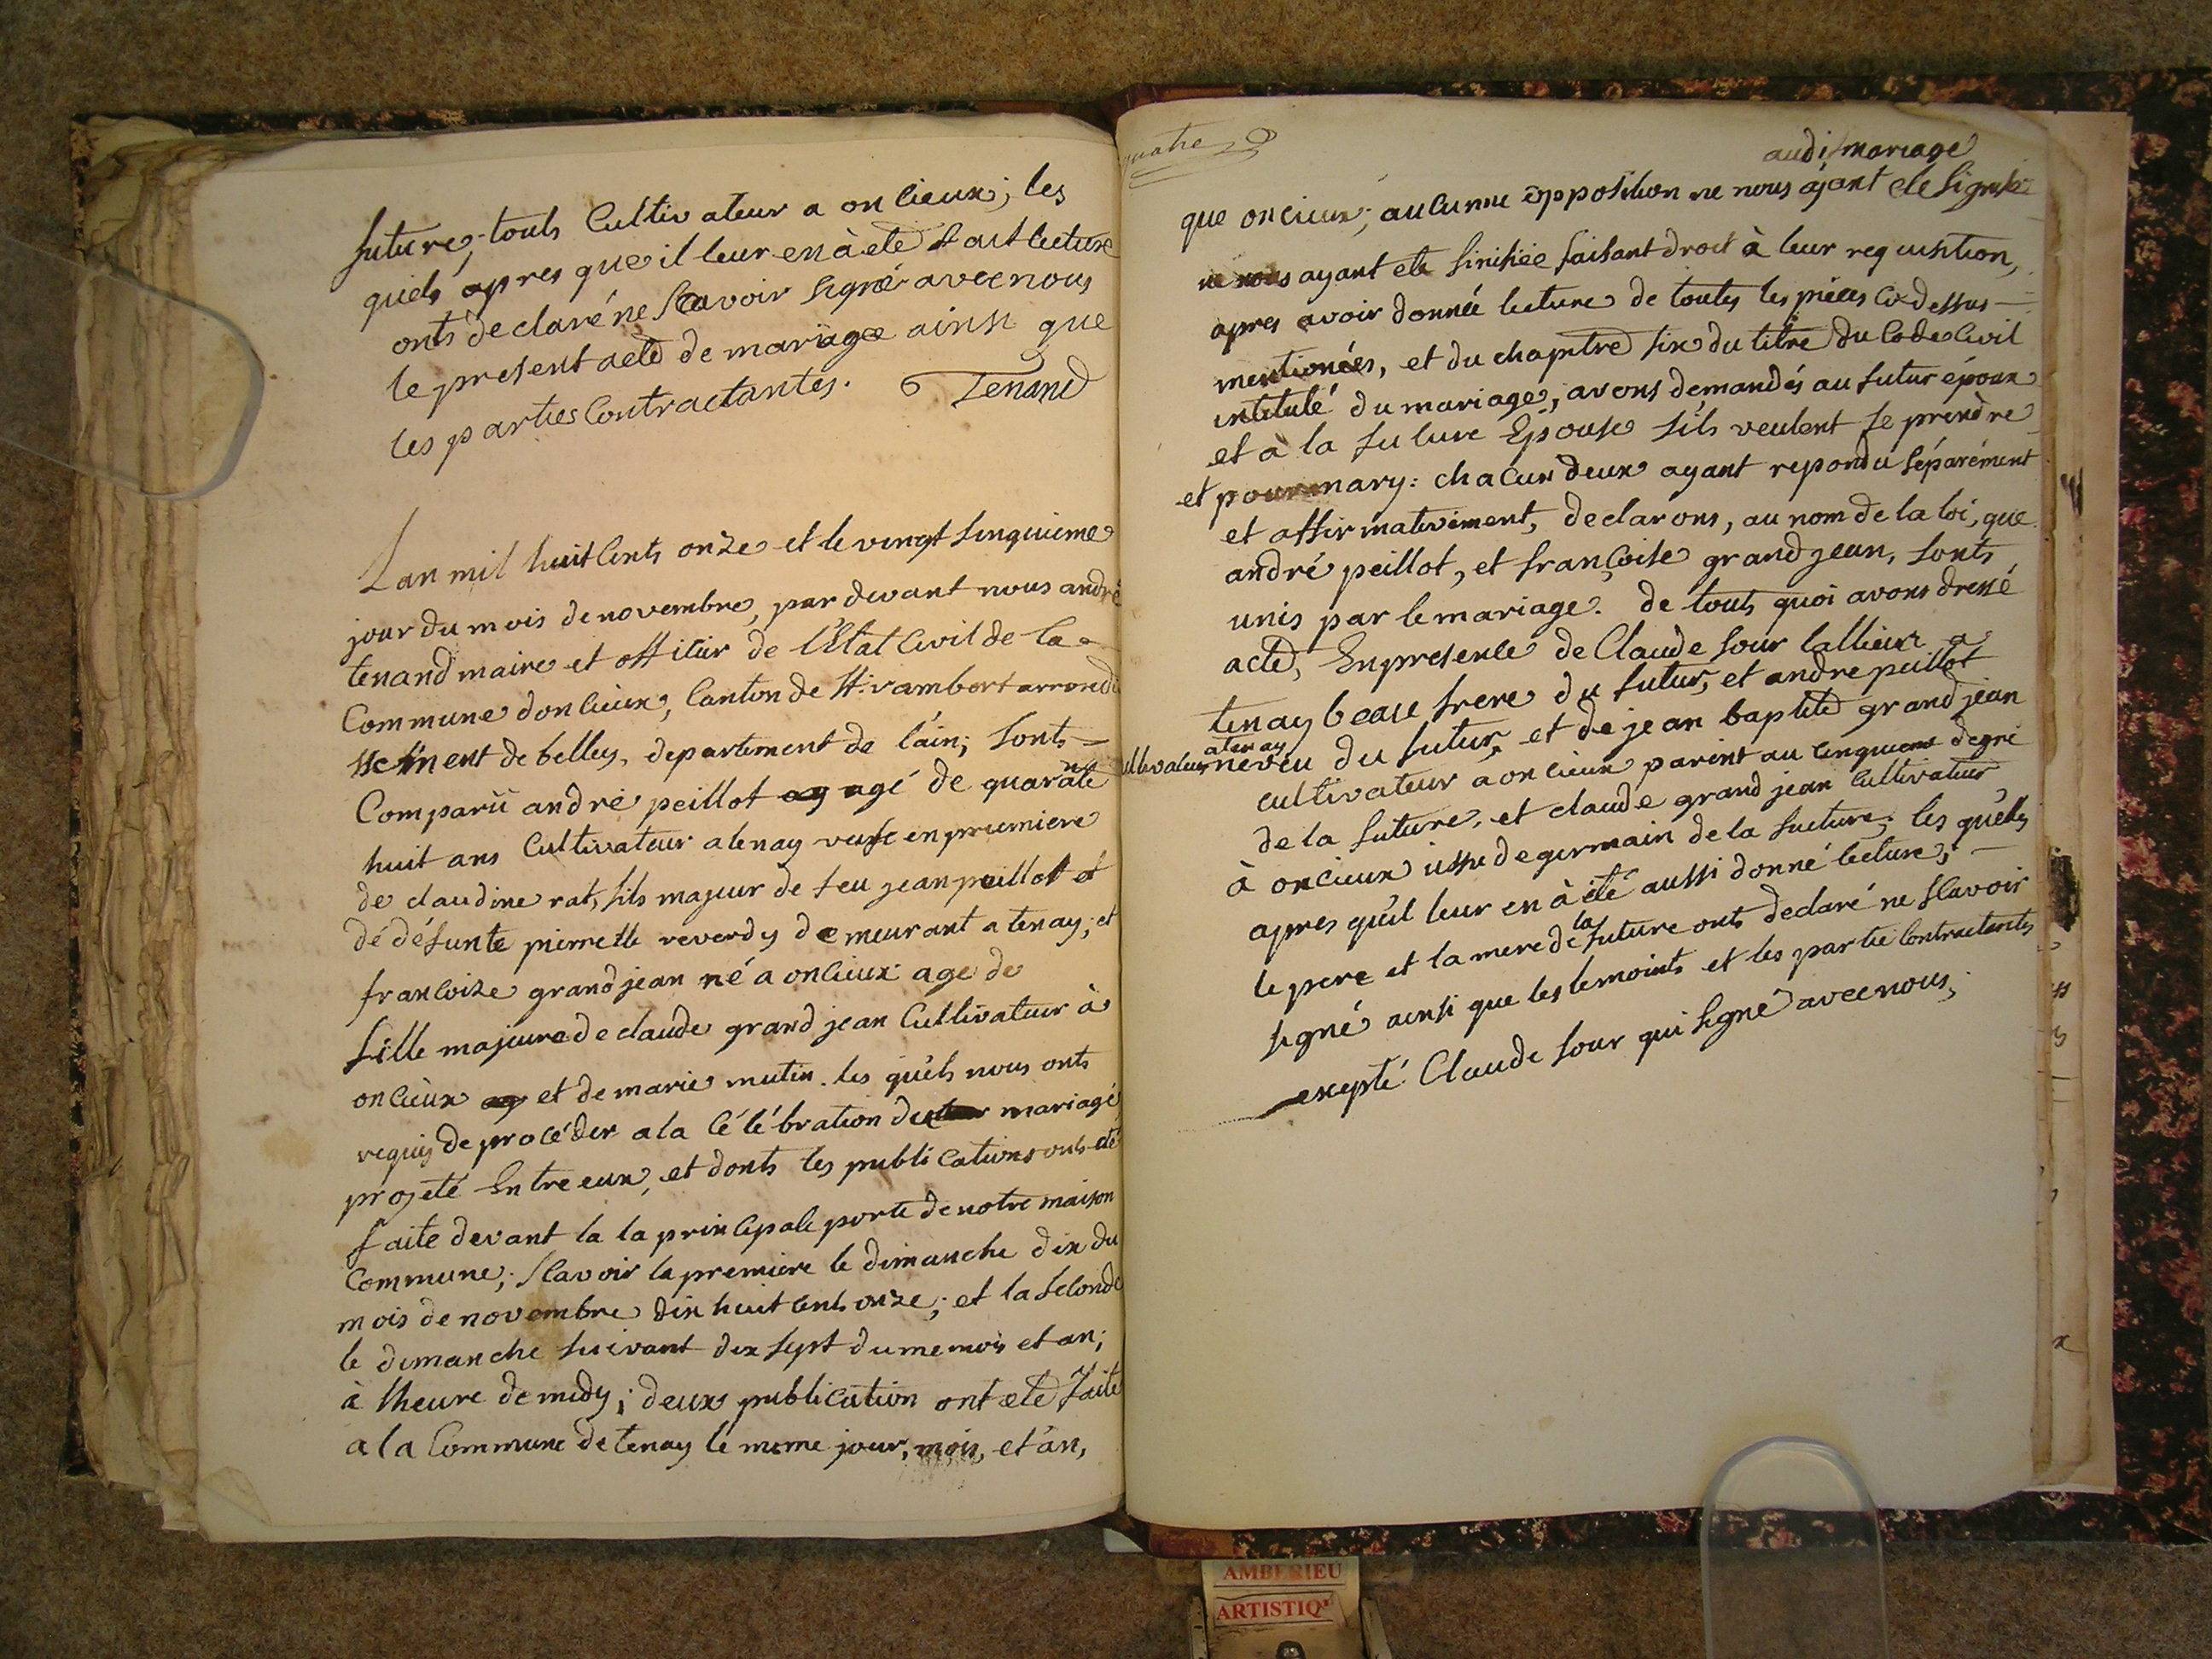 future; touts Cultivateur a oncieux; les
quels apres que il leur en à eté fait lecture
onts declaré ne scavoir signé avec nous
le present acte de mariage ainsi que
les parties Contractantes. Tenand
Lan mil huit Cents onze et le vingt sinquieme
jour du mois de novembre, par devant nous andré
tenand maire et officier de l'Etat Civil de la
Commune doncieux, Canton de St. rambert arrondi
ssement de belley, departement de l'ain; sonts
Comparü andré peillot agé de quarante
huit ans Cultivateur a tenay veuf en premiere
de claudine rat, fils majeur de feu jean peillot et
de défunte pierrette reverdy demeurant a tenay; et
francoise grand jean né a oncieux age de
fille majeure de claude grand jean Cultivateur à
oncieux et de marie mutin. les quels nous onts
requis de proceder a la Célébration du mariage
projeté Entre eux, et donts les publications onts eté
faite devant la la principale porte de notre maison
Commune; scavoir la premiere le dimanche dix du
mois de novembre dix huit cents onze; et la seconde
le dimanche suivant dix sept du meme mois et an;
à lheure de midy; deux publication ont eté faite
a la Commune de tenay le meme jour, mois, et an,
quatre
audit mariage
que oncieux; aucunne opposition ne nous ayant eté signifié
ne nous ayant ete sinifiée faisant droit à leur requisition,
apres avoir donnée lecture de toutes les piéces ci dessus
mentionées, et du chapitre six du titre du Code Civil
intitulé du mariage; avons demandés au futur époux
et à la future Epouse s'ils veulent se prendre
et pour mary: chacun deux ayant repondu séparément
et affirmativement, declarons, au nom de la loi, que
andré peillot, et françoise grand jean, sonts
unis par le mariage. de touts quoi avons dressé
acte, En presence de Claude sour a
tenay beau frere du futur, et andre peillot
cultivateur a tenay neveu du futur, et de jean baptite grand jean
cultivateur a oncieux parent au cinquieme degré
de la future, et claude grand jean Cultivateur
à oncieux issu de germain de la future; les quels
apres qu'il leur en à été aussi donné lecture;
le pere et la mere de la future onts declaré ne scavoir
signé ainsi que les temoints et les partie Contractantes
excepté Claude sour qui signé avec nous;
AMBERIEU
ARTISTIQ